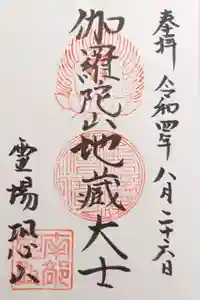 奉拝 令和四年 八月二十六日
伽羅陀山地蔵大士
霊場恐山
南部
恐山